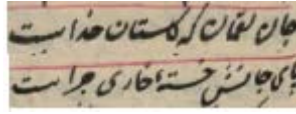 جان لقمان که گلستان خداست
پای جانش خسته خاری چراست